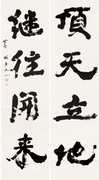 頂天立地
继往開來